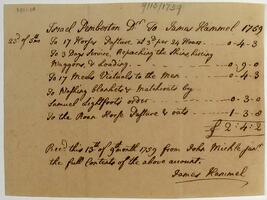 9/13/1759
Israel Pemberton Dr To James Hammel 1759
23d of 5mo To 17 Horses Pasture at 3d per 24 Hours 0-4-3
To 3 Days Service, Repacking the Skins hireing
Waggons, & Loading 0-9-0
To 17 Meals Victuals to the Men 0-4-3
To Washing blankets & Matchcoats by
Samuel Lightfoots order 0-3-0
To the Roan Horse Pasture & oats 1-3-8
£ 2:4:2
Recd this 13th of 9th month 1759 from John Michle
the full Contents of the above account.
James Hammel